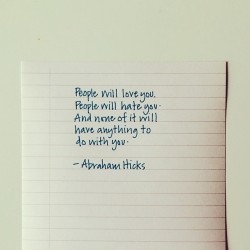 People will love you.
People will hate you.
And none of it will
have anything to
do with you.
- Abraham Hicks